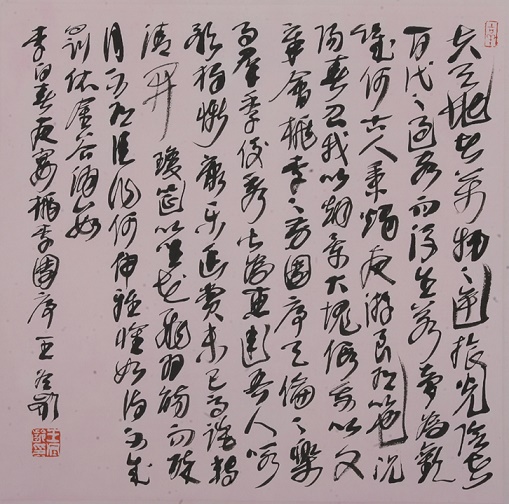 夫天地者萬物之逆旅光陰者
百代之過客而浮生若夢為歡
幾何古人秉燭夜游良有以也況
陽春召我以煙景大塊假我以文
章會桃李之芳園序天倫之樂
事群季俊秀皆為惠連吾人詠
歌獨慚康樂幽賞未已高談轉
清開瓊筵以坐花飛羽觴而醉
月不有佳詠何伸雅懷如詩不成
罰依金谷酒數
李白春夜宴桃李園序 王